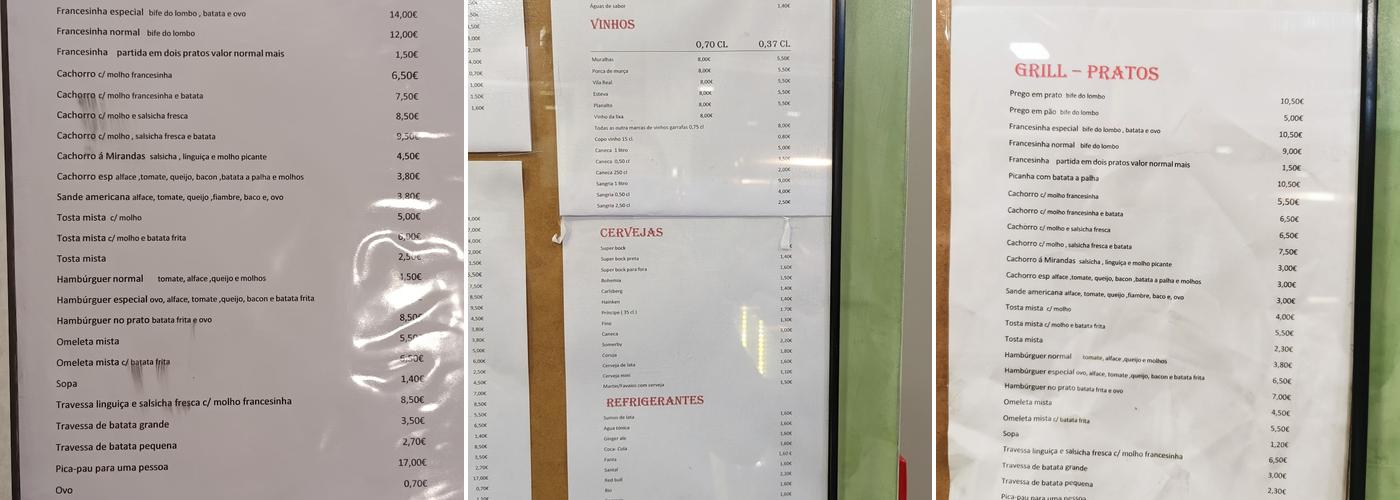 Francesinha especial bife do lombo , batata e ovo 14,00€
Francesinha normal bife do lombo 12,00€
Francesinha partida em dois pratos valor normal mais 1,50€
Cachorro c/ molho francesinha 6,50€
Cachorro c/ molho francesinha e batata 7,50€
Cachorro c/ molho e salsicha fresca 8,50€
Cachorro c/ molho , salsicha fresca e batata 9,50€
Cachorro á Mirandas salsicha , linguiça e molho picante 4,50€
Cachorro esp alface ,tomate, queijo, bacon ,batata a palha e molhos 3,80€
Sande americana alface, tomate, queijo ,fiambre, baco e, ovo 3,80€
Tosta mista c/ molho 5,00€
Tosta mista c/ molho e batata frita 6,00€
Tosta mista 2,50€
Hambúrguer normal tomate, alface ,queijo e molhos
Hambúrguer especial ovo, alface, tomate ,queijo, bacon e batata frita
Hambúrguer no prato batata frita e ovo 8,50
Omeleta mista 5,50
Omeleta mista c/ batata frita
Sopa 1,40€
Travessa linguiça e salsicha fresca c/ molho francesinha 8,50€
Travessa de batata grande 3,50€
Travessa de batata pequena 2,70€
Pica-pau para uma pessoa 17,00€
Ovo 0,70€
Águas de sabor 1,40€
VINHOS
0,70 CL 0,37 CL
Muralhas 8,00€ 5,50€
Porca de murça 8,00€ 5,50€
Vila Real 8,00€ 5,50€
Esteva 8,00€ 5,50€
Planalto 8,00€ 5,50€
Vinho da lixa 8,00€
Todas as outra marcas de vinhos garrafas 0,75 cl 8,00€
Copo vinho 15 cl 0,80€
Caneca 1 litro 5,00€
Caneca 0,50 cl
Caneca 250 cl 2,00€
Sangria 1 litro 9,00€
Sangria 0,50 cl 4,00€
Sangria 2,50 cl 2,50€
CERVEJAS
Super bock €
Super bock preta 1,40€
Super bock para fora 1,60€
Bohemia 1,50€
Carlsberg 1,40€
Hainken 1,40€
Principe ( 35 cl ) 1,70€
Fino 1,30€
Caneca
Somerby 2,20€
Corója 1,80€
Cerveja de lata 1,60€
Cerveja mini 1,10€
Martini/Favaios com cerveja 1,50€
REFRIGERANTES
Sumos de lata 1,60€
Agua tónica 1,60€
Ginger ale 1,60€
Coca- Cola 1,60€
Fanta 1,60€
Santal 1,60€
Red bull 2,20€
Bio 1,60€
GRILL – PRATOS
Prego em prato bife do lombo 10,50€
Prego em pão bife do lombo 5,00€
Francesinha especial bife do lombo , batata e ovo 10,50€
Francesinha normal bife do lombo 9,00€
Francesinha partida em dois pratos valor normal mais 1,50€
Picanha com batata a palha 10,50€
Cachorro c/ molho francesinha 5,50€
Cachorro c/ molho francesinha e batata 6,50€
Cachorro c/ molho e salsicha fresca 6,50€
Cachorro c/ molho , salsicha fresca e batata 7,50€
Cachorro á Mirandas salsicha , linguiça e molho picante 3,00€
Cachorro esp alface ,tomate, queijo, bacon ,batata a palha e molhos 3,00€
Sande americana alface, tomate, queijo ,fiambre, baco e, ovo 3,00€
Tosta mista c/ molho 4,00€
Tosta mista c/ molho e batata frita 5,50€
Tosta mista 2,30€
Hambúrguer normal tomate, alface ,queijo e molhos 3,80€
Hambúrguer especial ovo, alface, tomate ,queijo, bacon e batata frita 6,50€
Hambúrguer no prato batata frita e ovo 7,00€
Omeleta mista 4,50€
Omeleta mista c/ batata frita 5,50€
Sopa 1,20€
Travessa linguiça e salsicha fresca c/ molho francesinha 6,50€
Travessa de batata grande 3,00€
Travessa de batata pequena 2,30€
Pica-pau para uma pessoa